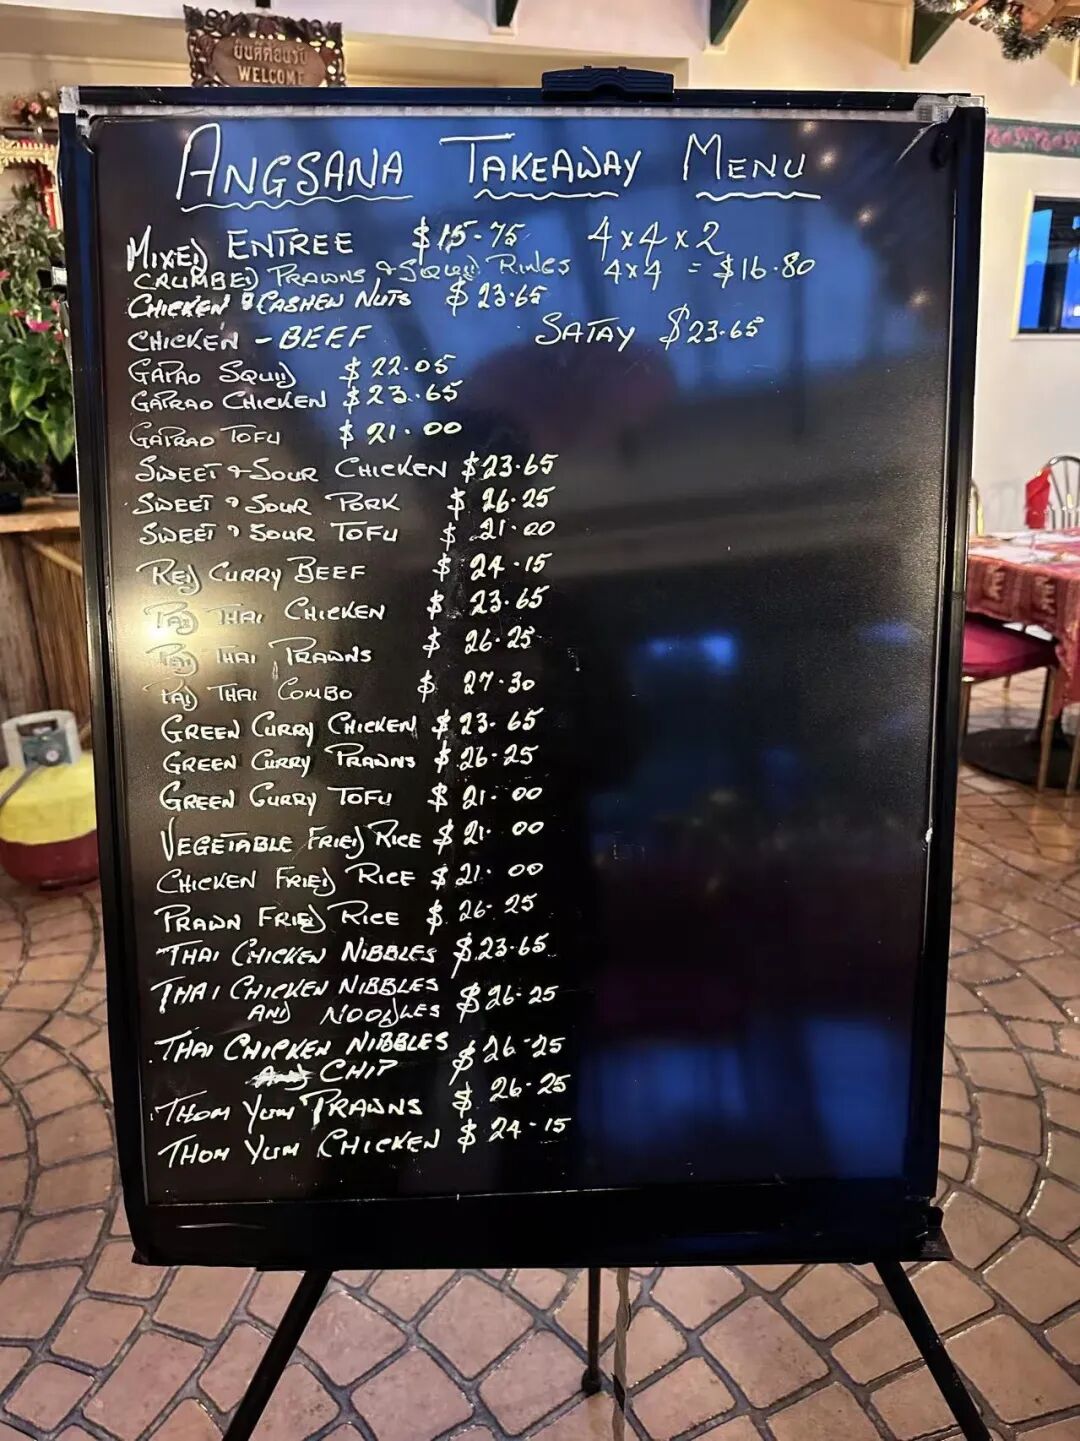 ยินดีต้อนรับ
WELCOME
ANGSANA TAKEAWAY MENU
MIXED ENTREE $15.75 4x4x2
CRUMBED PRAWNS & SQUID RINGS 4x4 = $16.80
CHICKEN & CASHEN NUTS $23.65
CHICKEN - BEEF SATAY $23.65
GAPAO SQUID $22.05
GAPRAO CHICKEN $23.65
GAPRAO TOFU $21.00
SWEET & SOUR CHICKEN $23.65
SWEET & SOUR PORK $26.25
SWEET & SOUR TOFU $21.00
RED CURRY BEEF $24.15
PAD THAI CHICKEN $23.65
PAD THAI PRAWNS $26.25
PAD THAI COMBO $27.30
GREEN CURRY CHICKEN $23.65
GREEN CURRY PRAWNS $26.25
GREEN CURRY TOFU $21.00
VEGETABLE FRIED RICE $21.00
CHICKEN FRIED RICE $21.00
PRAWN FRIED RICE $26.25
THAI CHICKEN NIBBLES $23.65
THAI CHICKEN NIBBLES
AND NOODLES $26.25
THAI CHICKEN NIBBLES $26.25
CHIP
THOM YUM PRAWNS $26.25
THOM YUM CHICKEN $24.15